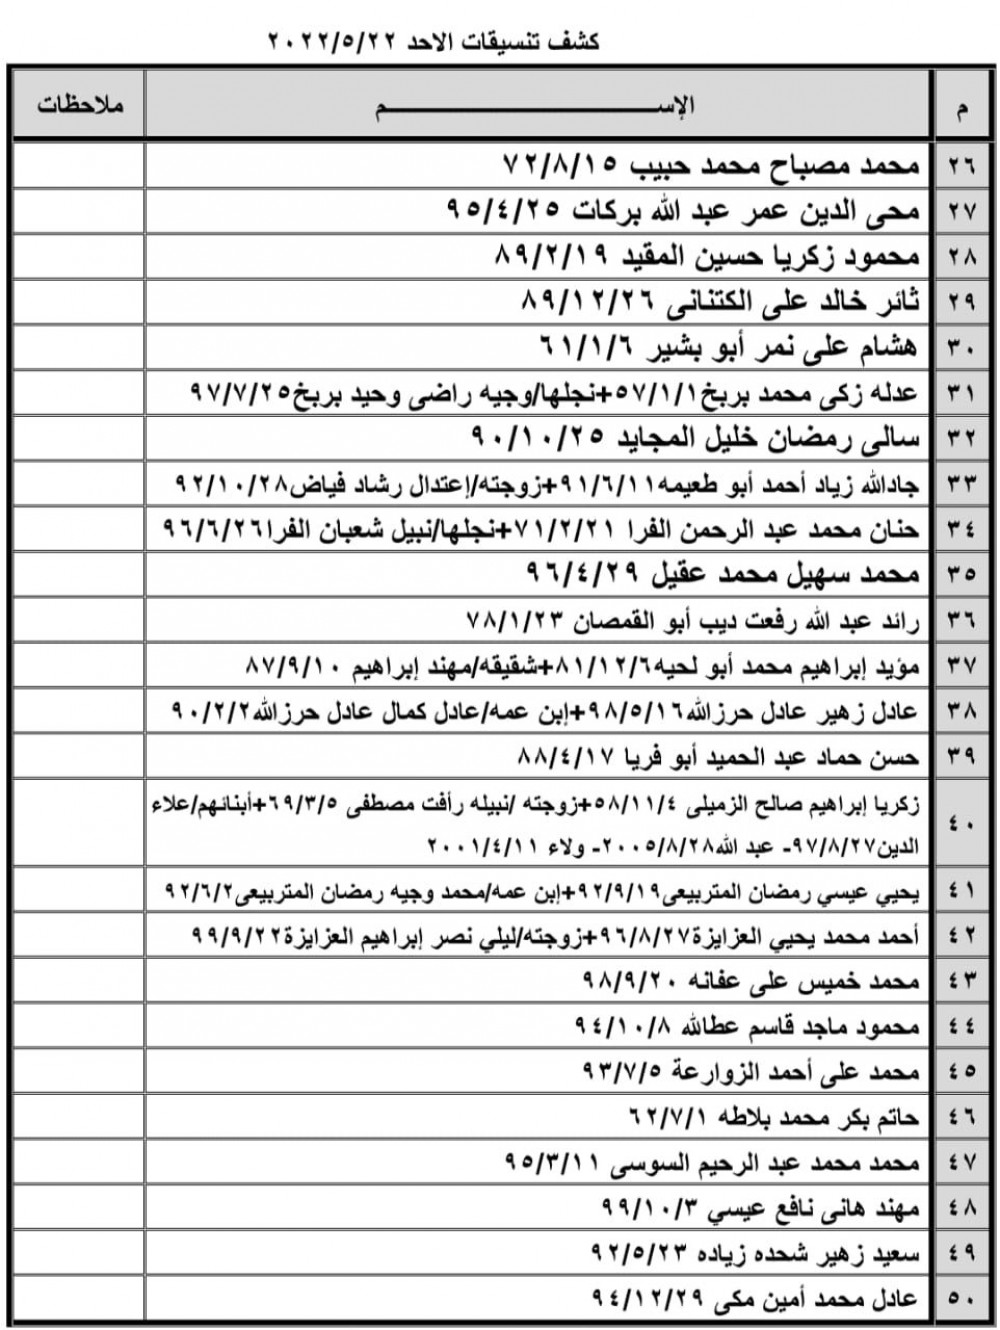 كشف تنسيقات الاحد ٢٠٢٢/٥/٢٢
م الإســـــــــم ملاحظات
٢٦ محمد مصباح محمد حبيب ٧٢/٨/١٥
٢٧ محى الدين عمر عبد الله بركات ٩٥/٤/٢٥
٢٨ محمود زكريا حسين المقيد ٨٩/٢/١٩
٢٩ ثائر خالد على الكتنانى ٨٩/١٢/٢٦
٣٠ هشام على نمر أبو بشير ٦١/١/٦
٣١ عدله زكى محمد بربخ٥٧/١/١+نجلها/وجيه راضى وحيد بربخ٩٧/٧/٢٥
٣٢ سالى رمضان خليل المجايد ٩٠/١٠/٢٥
٣٣ جادالله زياد أحمد أبو طعيمه٩١/٦/١١+زوجته/إعتدال رشاد فياض٩٢/١٠/٢٨
٣٤ حنان محمد عبد الرحمن الفرا ٧١/٢/٢١+نجلها/نبيل شعبان الفرا٩٦/٦/٢٦
٣٥ محمد سهيل محمد عقيل ٩٦/٤/٢٩
٣٦ رائد عبد الله رفعت ديب أبو القمصان ٧٨/١/٢٣
٣٧ مؤيد إبراهيم محمد أبو لحيه٨١/١٢/٦+شقيقه/مهند إبراهيم ٨٧/٩/١٠
٣٨ عادل زهير عادل حرزالله٩٨/٥/١٦+إبن عمه/عادل كمال عادل حرزالله٩٠/٢/٢
٣٩ حسن حماد عبد الحميد أبو فريا ٨٨/٤/١٧
٤٠ زكريا إبراهيم صالح الزميلى ٥٨/١١/٤+زوجته /نبيله رأفت مصطفى ٦٩/٣/٥+أبنائهم/علاء
الدين٩٧/٨/٢٧- عبد الله٢٠٠٥/٨/٢٨- ولاء ٢٠٠١/٤/١١
٤١ يحيي عيسي رمضان المتربيعى٩٢/٩/١٩+إبن عمه/محمد وجيه رمضان المتربيعى٩٢/٦/٢
٤٢ أحمد محمد يحيي العزايزة٩٦/٨/٢٧+زوجته/ليلي نصر إبراهيم العزايزة٩٩/٩/٢٢
٤٣ محمد خميس على عفانه ٩٨/٩/٢٠
٤٤ محمود ماجد قاسم عطالله ٩٤/١٠/٨
٤٥ محمد على أحمد الزوارعة ٩٣/٧/٥
٤٦ حاتم بكر محمد بلاطه ٦٢/٧/١
٤٧ محمد محمد عبد الرحيم السوسى ٩٥/٣/١١
٤٨ مهند هانى نافع عيسي ٩٩/١٠/٣
٤٩ سعيد زهير شحده زياده ٩٢/٥/٢٣
٥٠ عادل محمد أمين مكى ٩٤/١٢/٢٩